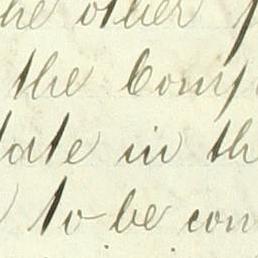 he other
the Comp
tate in th
to be con